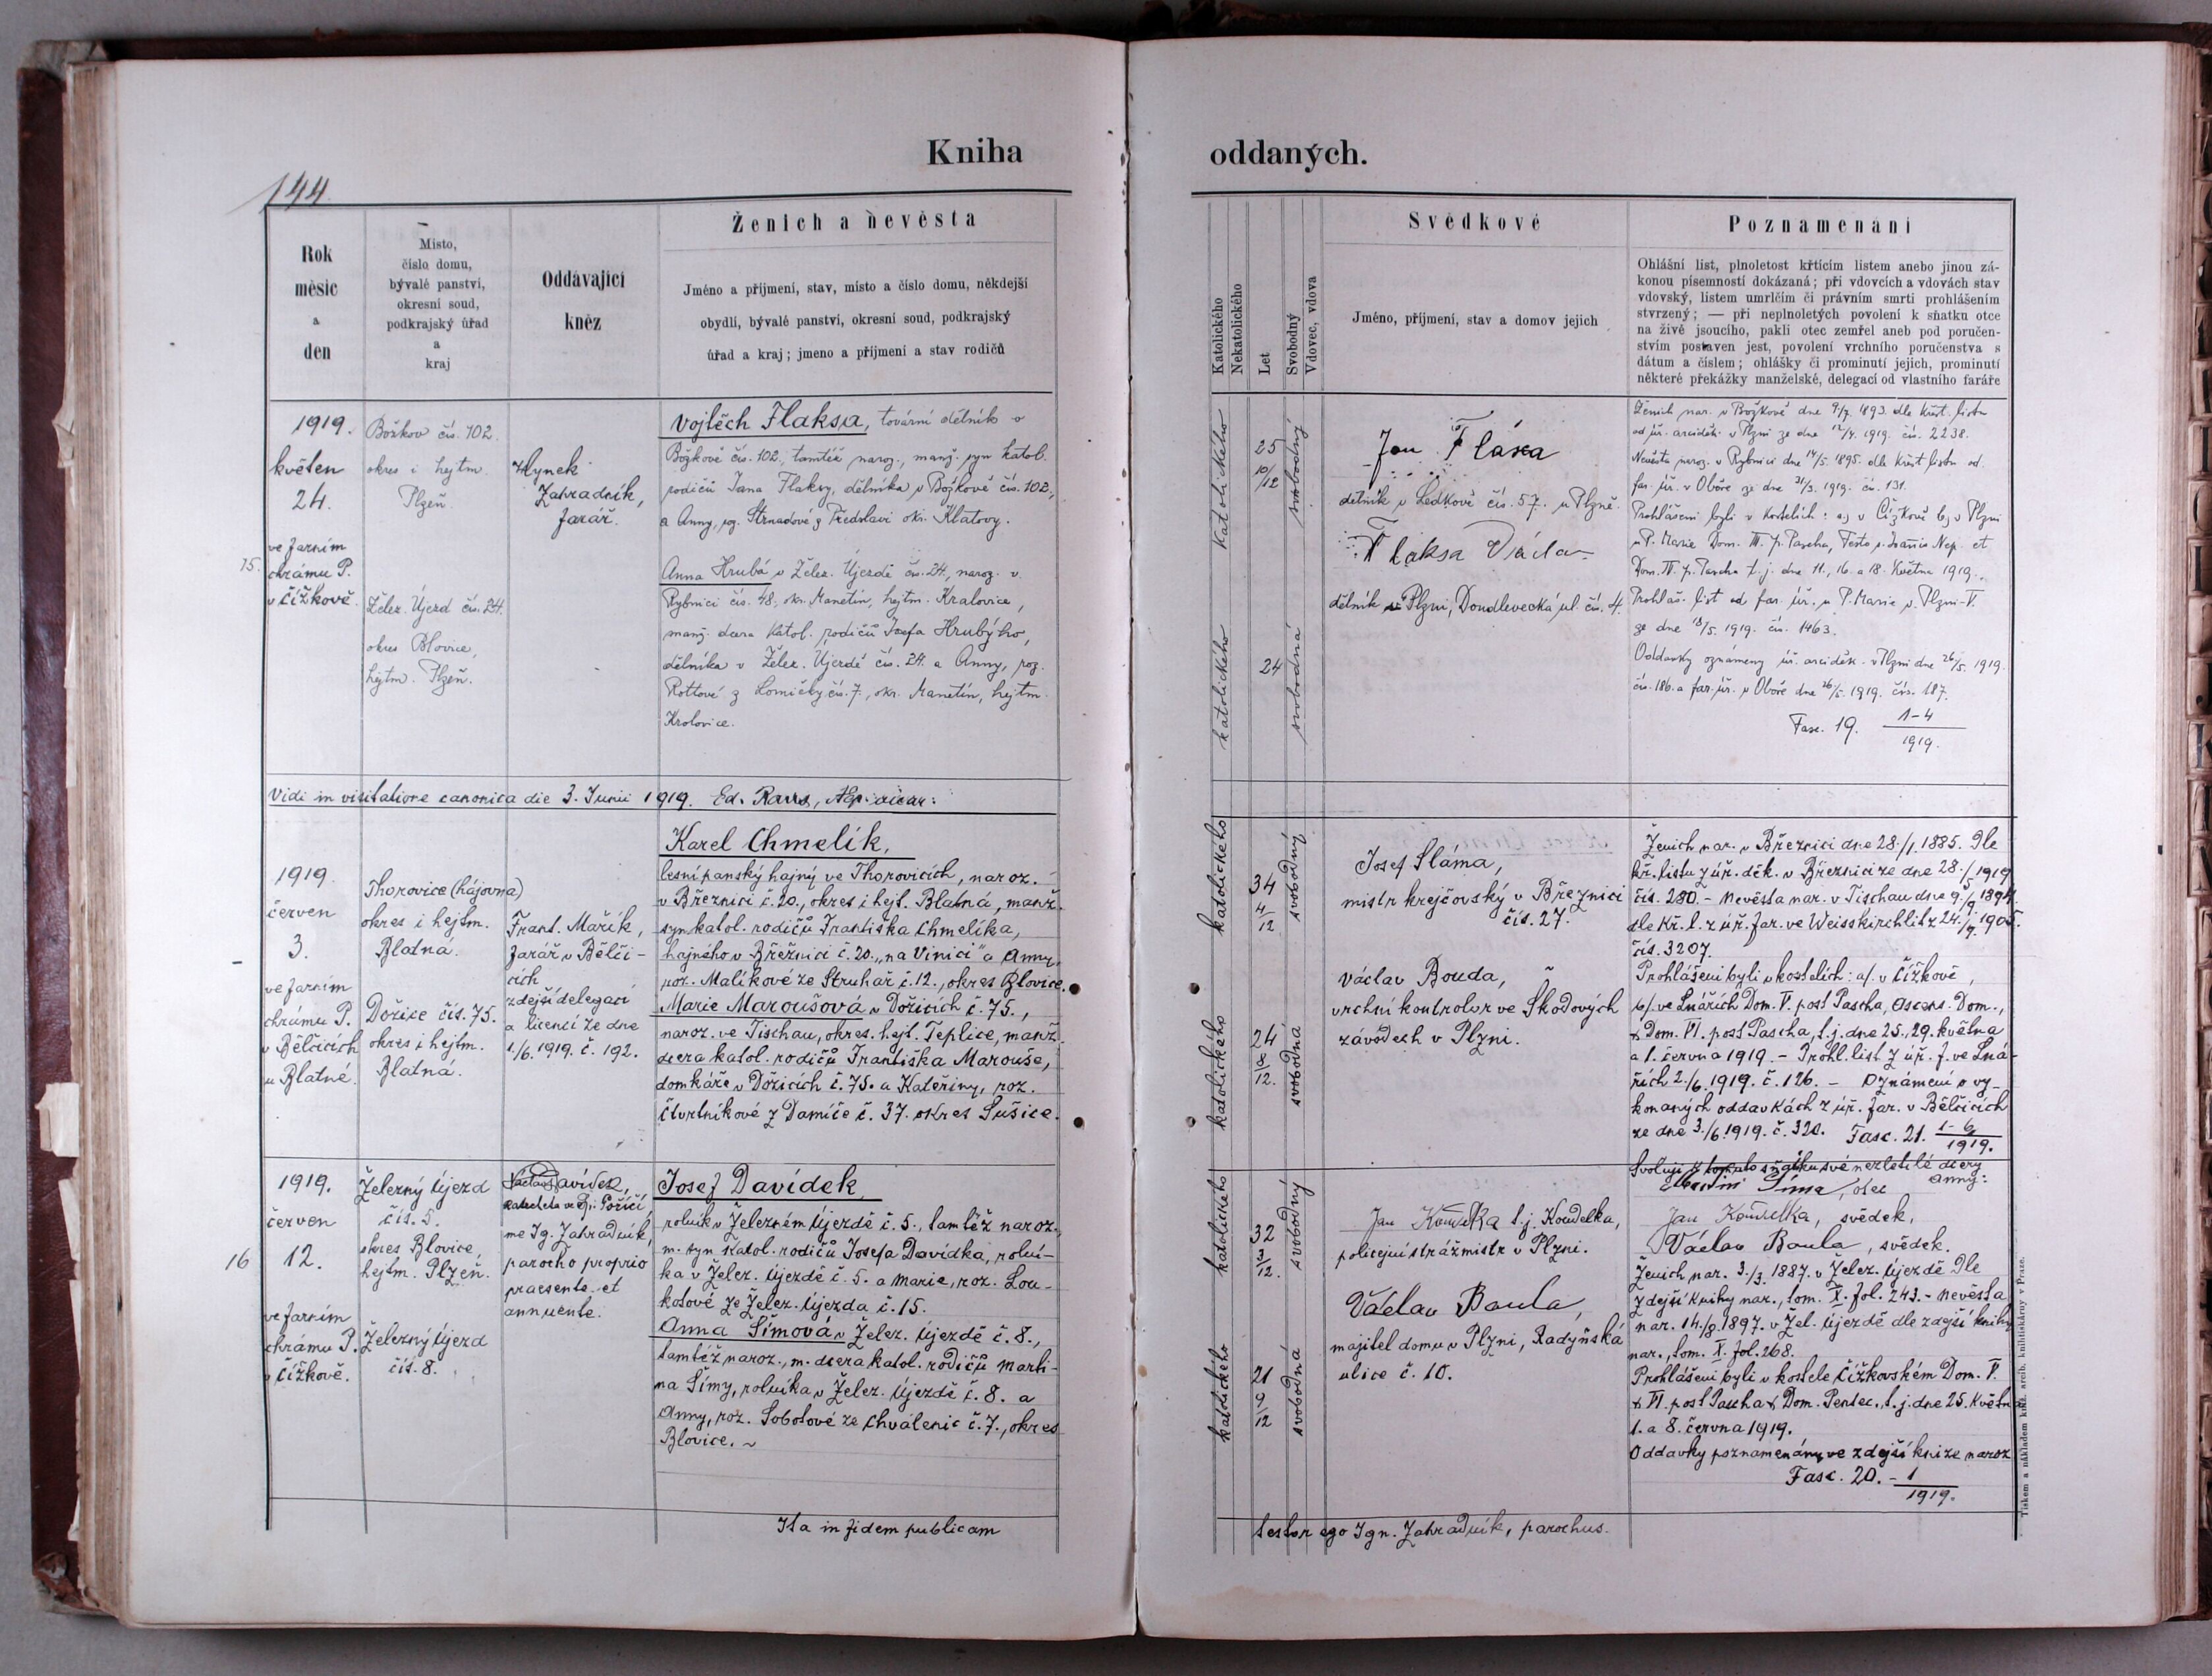 Kniha
oddaných.
144
Rok
měsíc
a
den
Místo,
číslo domu,
bývalé panství,
okresní soud,
podkrajský úřad
a
kraj
Oddávající
kněz
Ženich a nevěsta
Jméno a příjmení, stav, místo a číslo domu, někdejší
obydlí, bývalé panství, okresní soud, podkrajský
úřad a kraj; jmeno a příjmení a stav rodičů
Katolického
Nekatolického
Let
Svobodný
Vdovec, vdova
Svědkové
Jméno, příjmení, stav a domov jejich
Poznamenání
Ohlášní list, plnoletost křtícím listem anebo jinou zá-
konou písemností dokázaná; při vdovcích a vdovách stav
vdovský, listem umrlčím či právním smrti prohlášením
stvrzený; — při neplnoletých povolení k sňatku otce
na živě jsoucího, pakli otec zemřel aneb pod poručen-
stvím postaven jest, povolení vrchního poručenstva s
dátum a číslem; ohlášky či prominutí jejich, prominutí
některé překážky manželské, delegací od vlastního faráře
1919.
květen
24.
ve farním
15. chrámu P.
v Čížkově.
Božkov čís. 102.
okres i hejtm.
Plzeň.
Želez. Újezd čís. 24.
okres Blovice,
hejtm. Plzeň.
Hynek
Zahradník,
farář.
Vojtěch Flaksa, tovární dělník v
Božkově čís. 102., tamtéž naroz., manž. syn katol.
rodičů Jana Flaksy, dělníka v Božkově čís. 102.,
a Anny, roz. Strnadové z Předslavi okr. Klatovy.
Anna Hrubá v Želez. Újezdě čís. 24., naroz. v
Rybnici čís. 48., okr. Manetín, hejtm. Kralovice,
manž. dcera katol. rodičů Josefa Hrubýho,
dělníka v Želez. Újezdě čís. 24. a Anny, roz.
Rottové z Lomničky čís. 7., okr. Manetín, hejtm.
Kralovice.
katolického
25
10/12
svobodný
katolického
24
svobodná
Jan Fláxa
dělník v Ledkově čís. 57. u Plzně.
Flaksa Václa
dělník v Plzni, Doudlevecká ul. čís. 4.
Ženich nar. v Božkově dne 9/7. 1893. dle křest. listu
od úř. arciděk. v Plzni ze dne 12/4. 1919. čís. 2238.
Nevěsta naroz. v Rybnici dne 14/5. 1895. dle křest. listu od
far. úř. v Oboře ze dne 31/3. 1919. čís. 131.
Prohlášeni byli v kostelích: a) v Čížkově b) v Plzni
u P. Marie Dom. III. p. Pascha, Festo s. Joannis Nep. et
Dom. IV. p. Pascha t. j. dne 11., 16. a 18. května 1919.
Prohláš. list od far. úř. u P. Marie v Plzni-V.
ze dne 18/5. 1919. čís. 1463.
Oddavky oznámeny úř. arciděk. v Plzni dne 26/5. 1919.
čís. 186. a far. úř. v Oboře dne 26/5. 1919. čís. 187.
Fasc. 19. 1-4
1919.
Vidi in visitatione canonica die 3. Junii 1919. Ed.
1919.
červen
3.
ve farním
chrámu P.
v Bělčicích
u Blatné.
Thorovice (hájovna)
okres i hejtm.
Blatná.
Dožice čís. 75.
okres i hejtm.
Blatná.
Frant. Mařík,
farář v Bělči-
cích
zdejší delegací
a licencí ze dne
1./6. 1919. č. 192.
Karel Chmelík,
lesní panský hajný ve Thorovicích, naroz.
v Březnici č. 20., okres i hejt. Blatná, manž.
syn katol. rodičů Františka Chmelíka,
hajného v Březnici č. 20. „na Vinici“ a Anny,
roz. Malíkové ze Struhař č. 12., okres Blovice.
Marie Maroušová v Dožicích č. 75.,
naroz. ve Tischau, okres. hejt. Teplice, manž.
dcera katol. rodičů Františka Marouše,
domkáře v Dožicích č. 75. a Kateřiny, roz.
Čtvrtníkové z Damíče č. 37. okres Sušice.
katolického
34
4/12
svobodný
katolického
24
8/12.
svobodná
Josef Sláma,
mistr krejčovský v Březnici
čís. 27.
Václav Bouda,
vrchní kontrolor ve Škodových
závodech v Plzni.
Ženich nar. v Březnici dne 28./1. 1885. Dle
kř. listu z úř. děk. v Březnici ze dne 28./ 1919
čís. 280. - Nevěsta nar. v Tischau dne 9./9. 1894.
dle kř. l. z úř. far. ve Weisskirchlitz 24./9. 1905.
čís. 3207.
Prohlášeni byli v kostelích: a/. v Čížkově,
b/. ve Lnářích Dom. V. post Pascha, Ascens. Dom.,
& Dom. VI. post Pascha, t. j. dne 25., 29. května
a 1. června 1919. - Prohl. list z úř. f. ve Lná-
řích 2./6. 1919. č. 126. - Oznámení o vy-
konaných oddavkách z úř. far. v Bělčicích
ze dne 3./6. 1919. č. 320. Fasc. 21. 1-6
1919.
16
1919.
červen
12.
ve farním
chrámu P.
v Čížkově.
Železný Újezd
čís. 5.
okres Blovice,
hejtm. Plzeň.
Železný Újezd
čís. 8.
Václav Davídek,
katecheta ve Sp. Poříčí,
me Ig. Zahradník,
parocho proprio
praesente et
annuente.
Josef Davídek
rolník v Železném Újezdě č. 5., tamtéž naroz.,
m. syn katol. rodičů Josefa Davídka, rolní-
ka v Želez. Újezdě č. 5. a Marie, roz. Lou-
kotové ze Želez. Újezda č. 15.
Anna Šímová v Želez. Újezdě č. 8.,
tamtéž naroz., m. dcera katol. rodičů Marti-
na Šímy, rolníka v Želez. Újezdě č. 8. a
Anny, roz. Sobotové ze Chválenic č. 7., okres
Blovice. ~
katolického
32
3/12.
svobodný
katolického
21
9/12
svobodná
Jan Koudelka t. j. Koudelka,
policejní strážmistr v Plzni.
Václav Baula,
majitel domu v Plzni, Radyňská
ulice č. 10.
Svoluji k tomuto sňatku své nezletilé dcery
Anny:
Martin Šíma, otec
Jan Koudelka, svědek.
Václav Baula, svědek.
Ženich nar. 3./3. 1887. v Želez. Újezdě Dle
zdejší knihy nar., tom. X. fol. 243. - Nevěsta
nar. 14./8. 1897. v Žel. Újezdě dle zdejší knihy
nar., tom. X. fol. 268.
Prohlášeni byli v kostele Čížkovském Dom. V.
& VI. post Pascha & Dom. Pentec., t. j. dne 25. května
1. a 8. června 1919.
Oddavky poznamenány ve zdejší knize naroz
Fasc. 20. - 1
1919.
Ita in fidem publicam
testor ego Ign. Zahradník, parochus.
Tiskem a nákladem kníž. arcib. knihtiskárny v Praze.